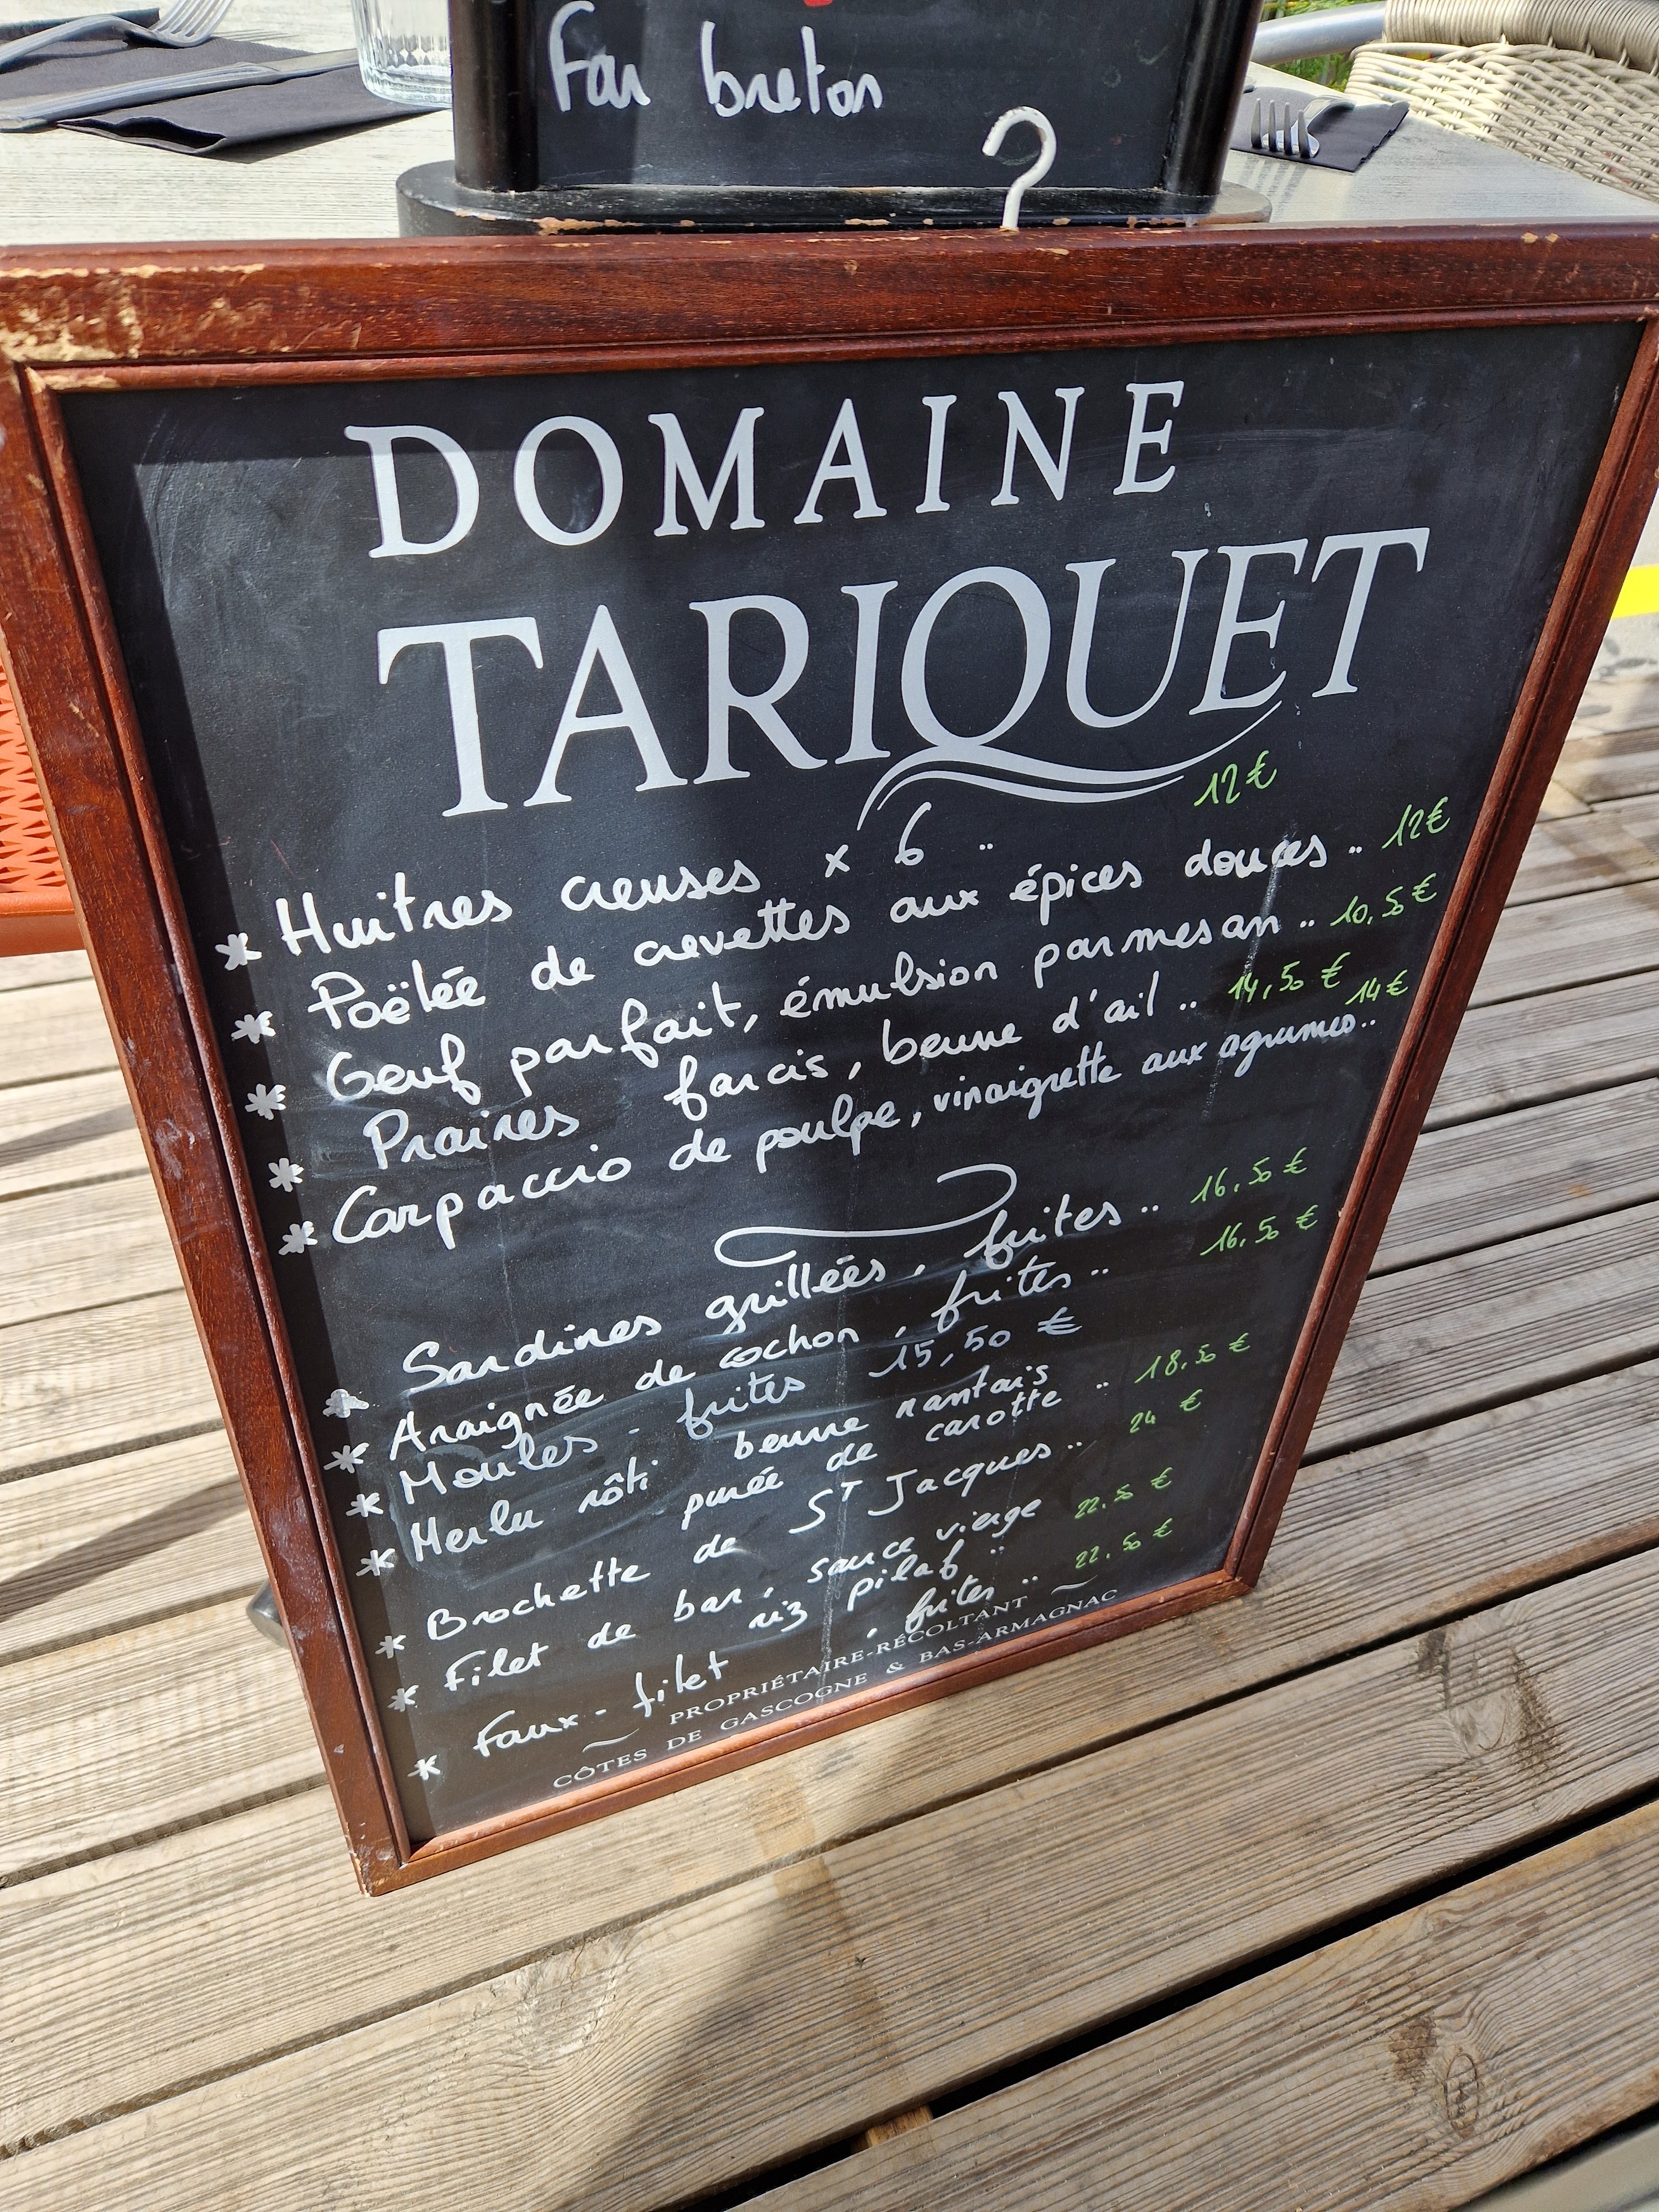 Far breton
DOMAINE
TARIQUET
* Huitres creuses x 6 .. 12€
* Poëlée de crevettes aux épices douces .. 12€
* Oeuf parfait, émulsion parmesan .. 10,50€
* Praires farcis, beurre d'ail .. 14,50 €
* Carpaccio de poulpe, vinaigrette aux agrumes.. 14€
* Sardines grillées, frites .. 16.50 €
* Araignée de cochon, frites .. 16.50 €
* Moules - frites 15,50 €
* Merlu rôti beurre nantais
purée de carotte .. 18.50 €
* Brochette de ST Jacques .. 24 €
* Filet de bar, sauce vierge
riz pilaf .. 22.50 €
* Faux-filet, frites .. 22.50 €
PROPRIÉTAIRE-RÉCOLTANT
CÔTES DE GASCOGNE & BAS-ARMAGNAC